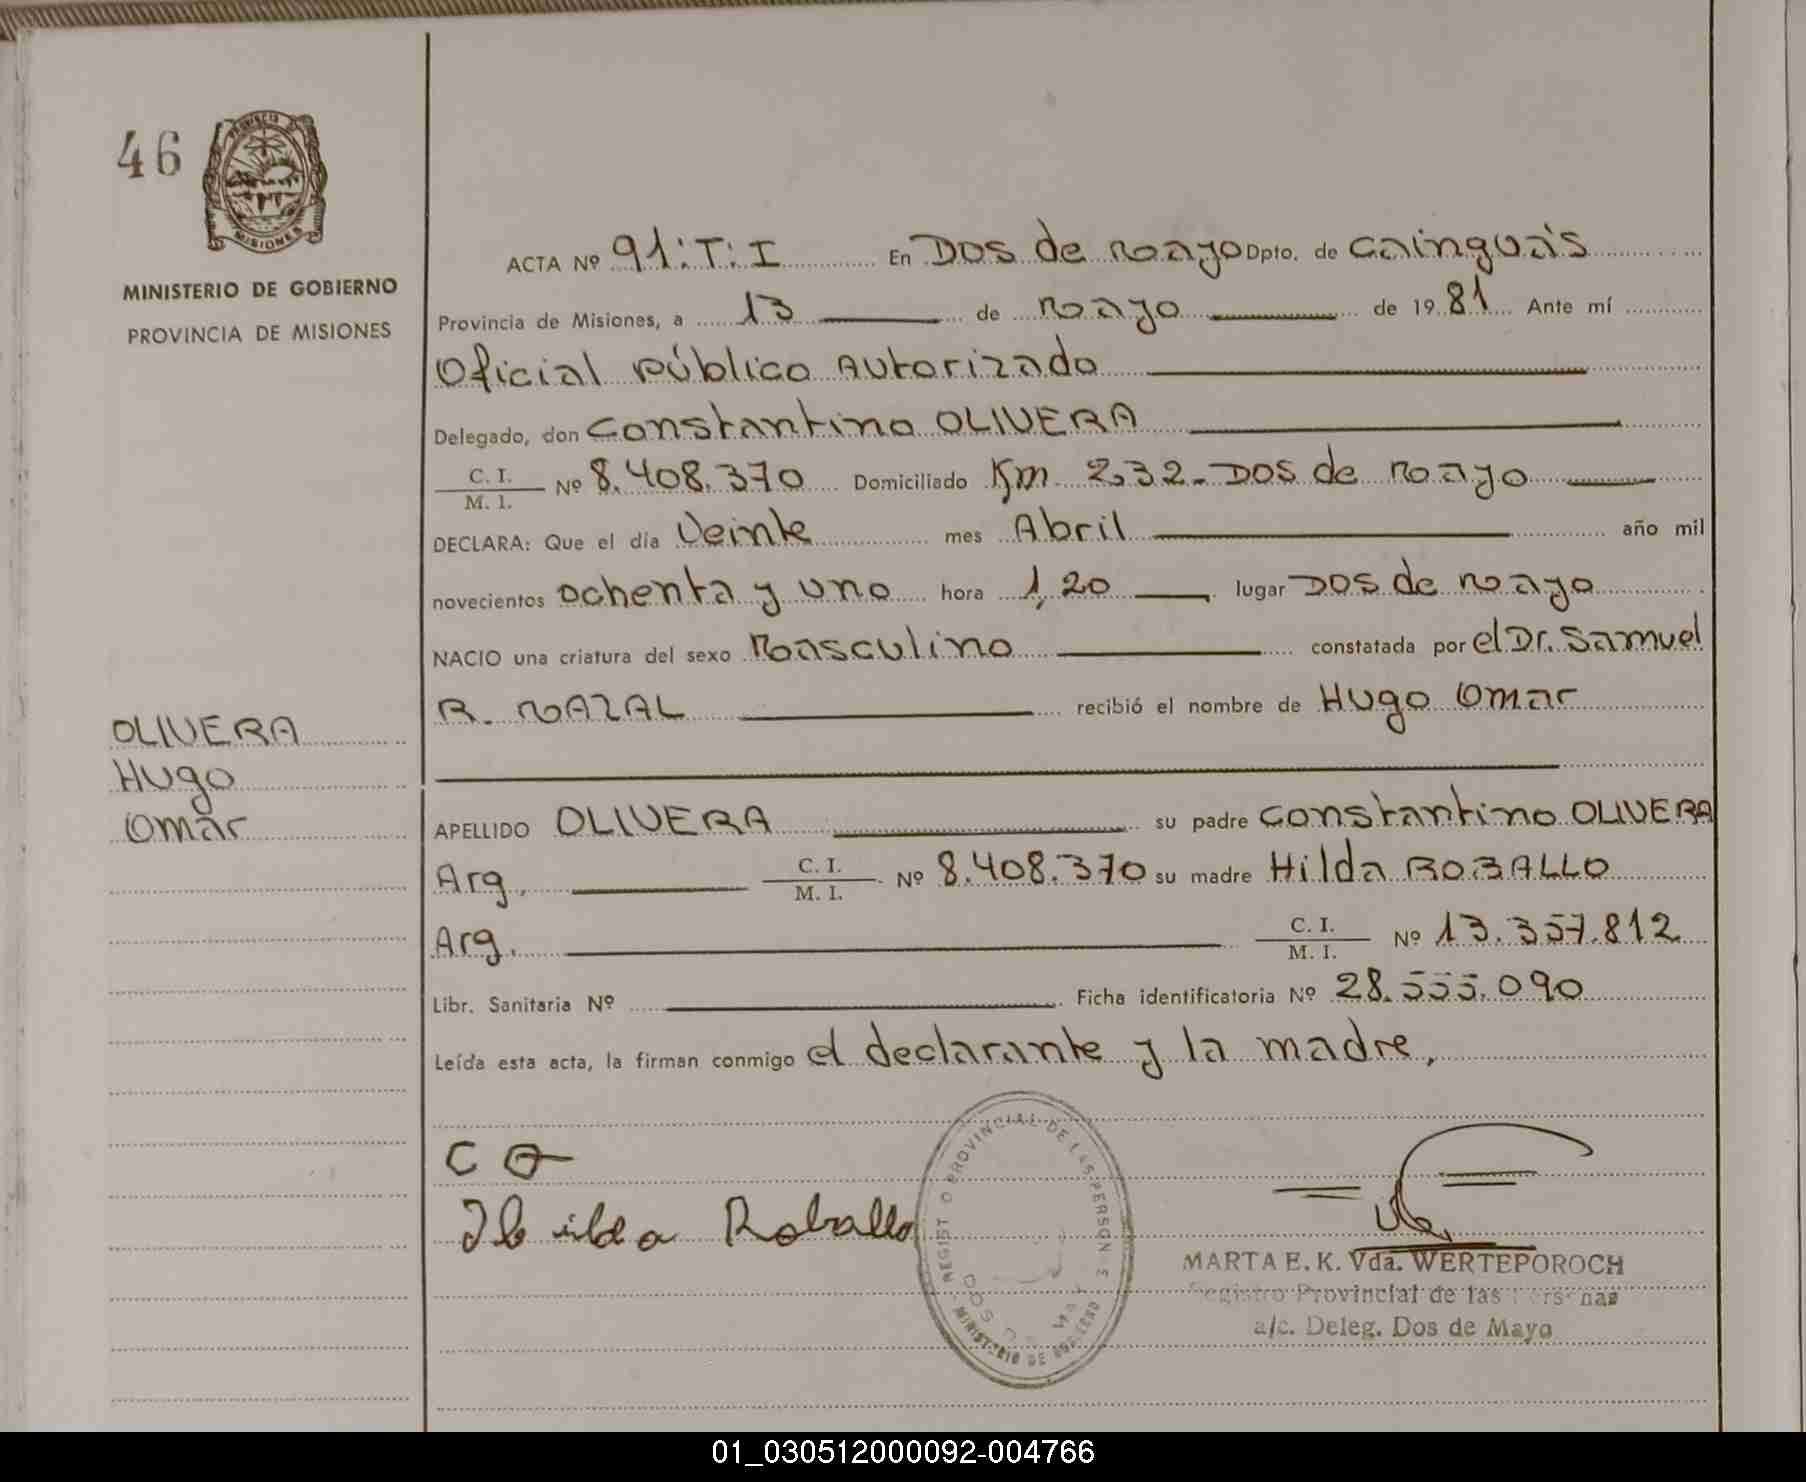 46
PROVINCIA DE
MISIONES
MINISTERIO DE GOBIERNO
PROVINCIA DE MISIONES
OLIVERA
Hugo
Omar
ACTA Nº 91:T:I En Dos de Mayo Dpto. de Cainguás
Provincia de Misiones, a 13 de Mayo de 1981 Ante mí
Oficial Público Autorizado
Delegado, don Constantino OLIVERA
C. I.
M. I. Nº 8.408.370 Domiciliado Km 232- Dos de Mayo
DECLARA: Que el día Veinte mes Abril año mil
novecientos Ochenta y uno hora 1,20 lugar Dos de Mayo
NACIO una criatura del sexo Masculino constatada por el Dr. Samuel
R. NAZAL recibió el nombre de Hugo Omar
APELLIDO OLIVERA su padre Constantino OLIVERA
Arg. C. I.
M. I. Nº 8.408.370 su madre Hilda ROBALLO
Arg. C. I.
M. I. Nº 13.357.812
Libr. Sanitaria Nº Ficha identificatoria Nº 28.555.090
Leída esta acta, la firman conmigo el declarante y la madre,
C O
Hilda Roballo
REGIST O PROVINCIAL DE LAS PERSON S
MINISTERIO DE GOBIERNO
DOS DE MAY
MARTA E. K. Vda. WERTEPOROCH
Registro Provincial de las Personas
a/c. Deleg. Dos de Mayo
01_030512000092-004766